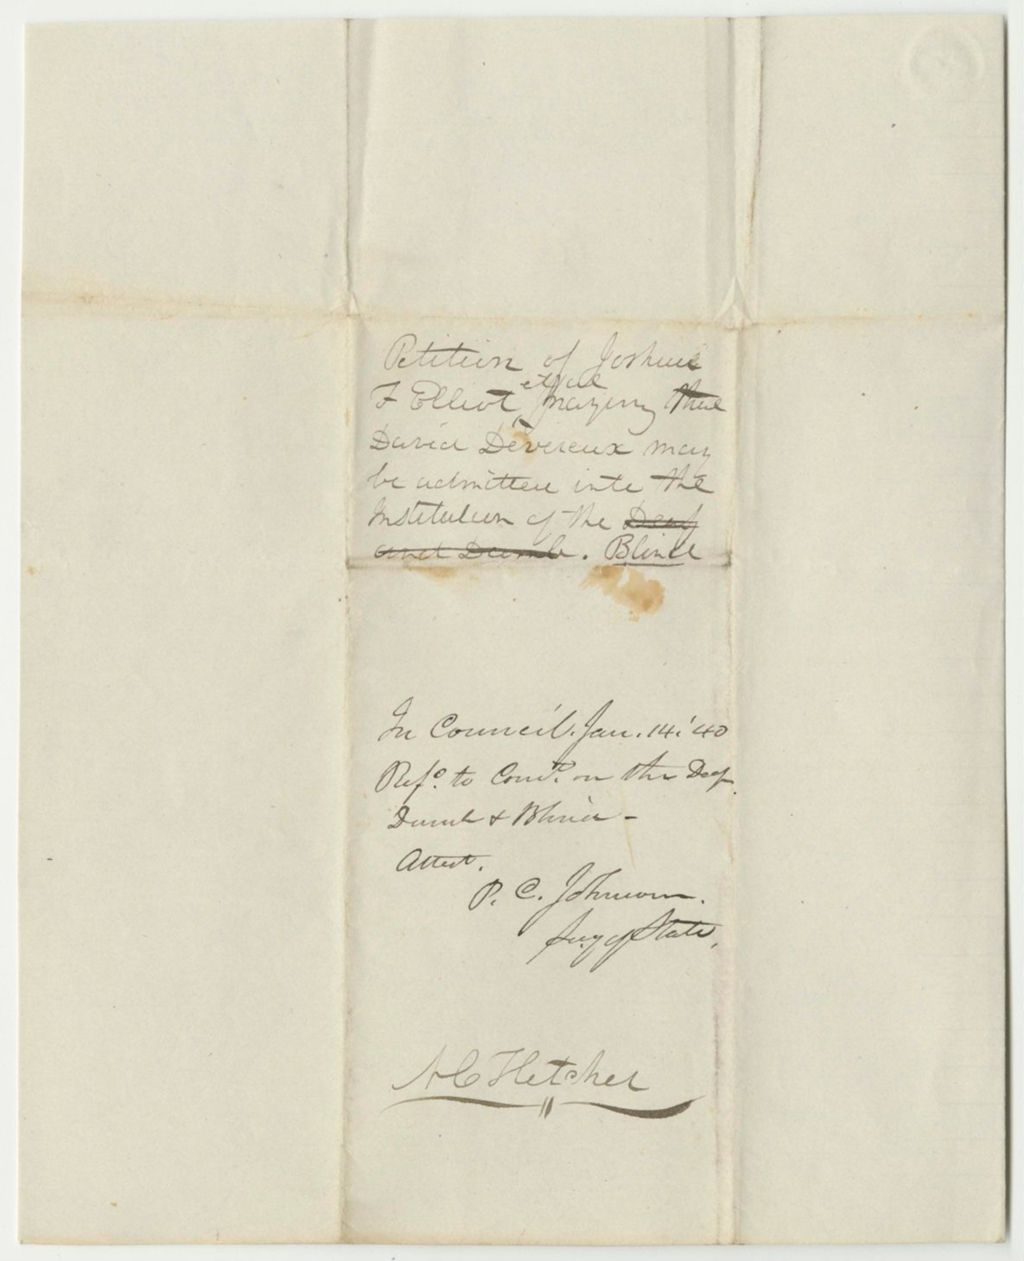 Petition of Joshua
F Elliot, et al praying that
David Devereux may
be admitted into the
Institution of the Deaf
and Dumb. Blind
In Council. Jan. 14. '40
Refd. to Comee. on the Deaf
Dumb & Blind –
Attest.
P. C. Johnson.
Secy of State.
A C Fletcher